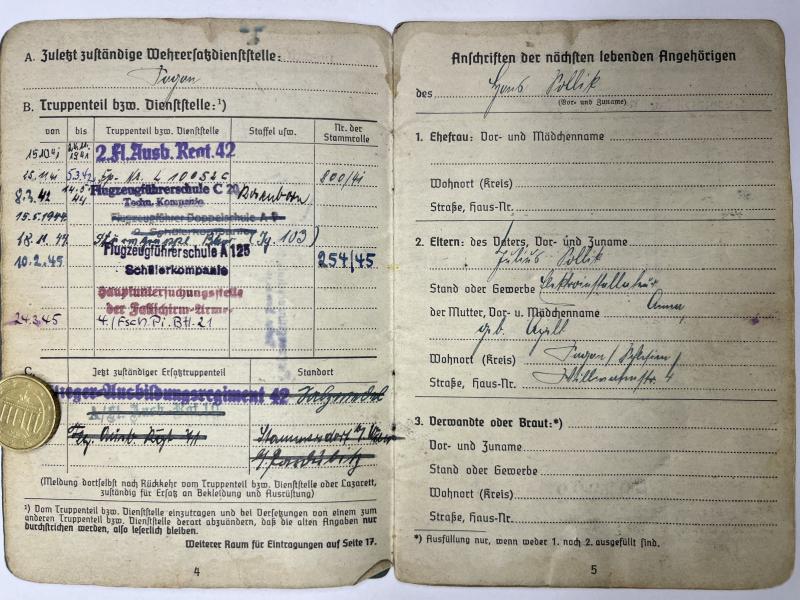 A. Zuletzt zuständige Wehrersatzdienststelle:
Sagan
B. Truppenteil bzw. Dienststelle:¹)
von bis Truppenteil bzw. Dienststelle Staffel usw. Nr. der Stammrolle
15.10.41 1941 2. Fl. Ausb. Regt. 42
25.11.41 5.3.42 L 10052 C 800/41
8.3.42 Flugzeugführerschule C 20
Techn. Kompanie
15.5.1944 Flugzeugführer Doppelschule A
2. Schülerkompanie
18.11.44 (Jg. 103)
10.2.45 Flugzeugführerschule A 125 254/45
Schülerkompanie
Hauptuntersuchungsstelle
der Fallschirm-Armee
24.3.45 4. (Fsch) Pi. Btl. 21
C. Jetzt zuständiger Ersatztruppenteil Standort
Flieger-Ausbildungsregiment 42 Salzwedel
Flg. Ausb. Regt
(Meldung dortselbst nach Rückkehr vom Truppenteil bzw. Dienststelle oder Lazarett,
zuständig für Ersatz an Bekleidung und Ausrüstung)
¹) Vom Truppenteil bzw. Dienststelle einzutragen und bei Versetzungen von einem zum
anderen Truppenteil bzw. Dienststelle derart abzuändern, daß die alten Angaben nur
durchstrichen werden, also leserlich bleiben.
Weiterer Raum für Eintragungen auf Seite 17.
4
Anschriften der nächsten lebenden Angehörigen
des Hans Pollik
(Vor- und Zuname)
1. Ehefrau: Vor- und Mädchenname
Wohnort (Kreis)
Straße, Haus-Nr.
2. Eltern: des Vaters, Vor- und Zuname
Julius Pollik
Stand oder Gewerbe Elektroinstallateur
der Mutter, Vor- u. Mädchenname Anna,
geb.
Wohnort (Kreis) Sagan/Schlesien/
Straße, Haus-Nr. 4
3. Verwandte oder Braut:*)
Vor- und Zuname
Stand oder Gewerbe
Wohnort (Kreis)
Straße, Haus-Nr.
*) Ausfüllung nur, wenn weder 1. noch 2. ausgefüllt sind.
5